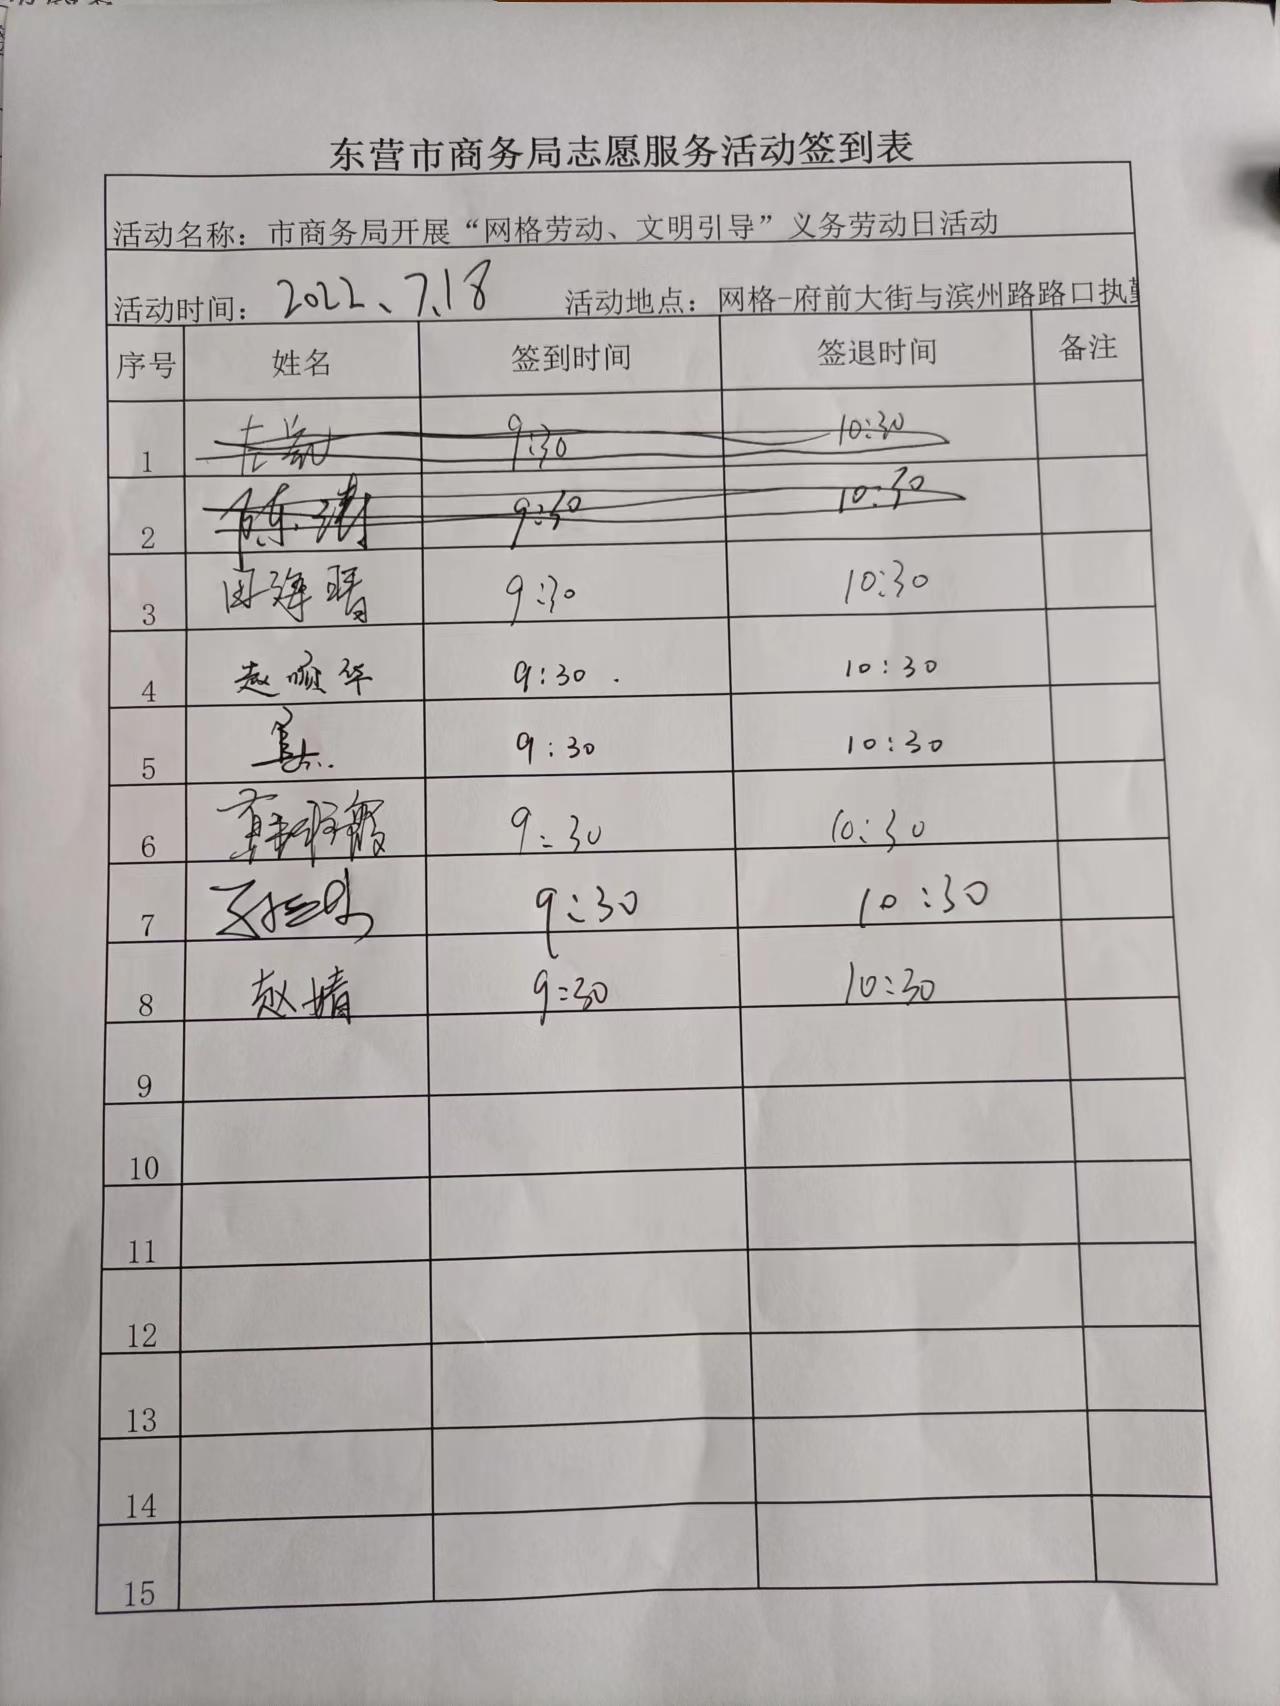 东营市商务局志愿服务活动签到表
活动名称：市商务局开展“网格劳动、文明引导”义务劳动日活动
活动时间：2022、7.18 活动地点：网格-府前大街与滨州路路口执勤
序号 姓名 签到时间 签退时间 备注
1 9:30 10:30
2 陈涛 9:30 10:30
3 田海晴 9:30 10:30
4 赵顺华 9:30. 10:30
5 9:30 10:30
6 9:30 10:30
7 9:30 10:30
8 赵婧 9:30 10:30
9
10
11
12
13
14
15